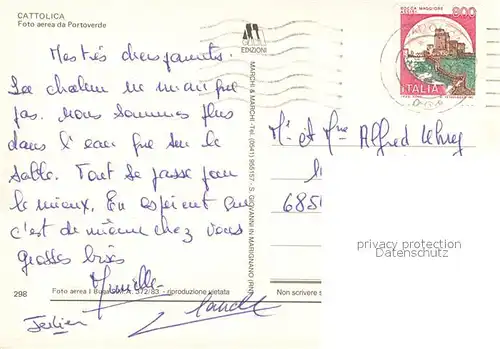 CATTOLICA
Foto aerea da Portoverde
Mes très chers parents.
La chaleur ne manque
pas. nous sommes plus
dans l'eau que sur le
sable. Tout se passe pour
le mieux. En espérant que
c'est de même chez vous
grosses bises
298
Foto aerea I Buga S.M.A. 372/83 - riproduzione vietata
EDIZIONI
MARCHI & MARCHI - Tel. (0541) 955157 - S. GIOVANNI IN MARIGNANO (RN)
ROCCA MAGGIORE
ASSISI
800
ITALIA
Mr et Mme Alfred
685
privacy protection
Datenschutz
Non scrivere s